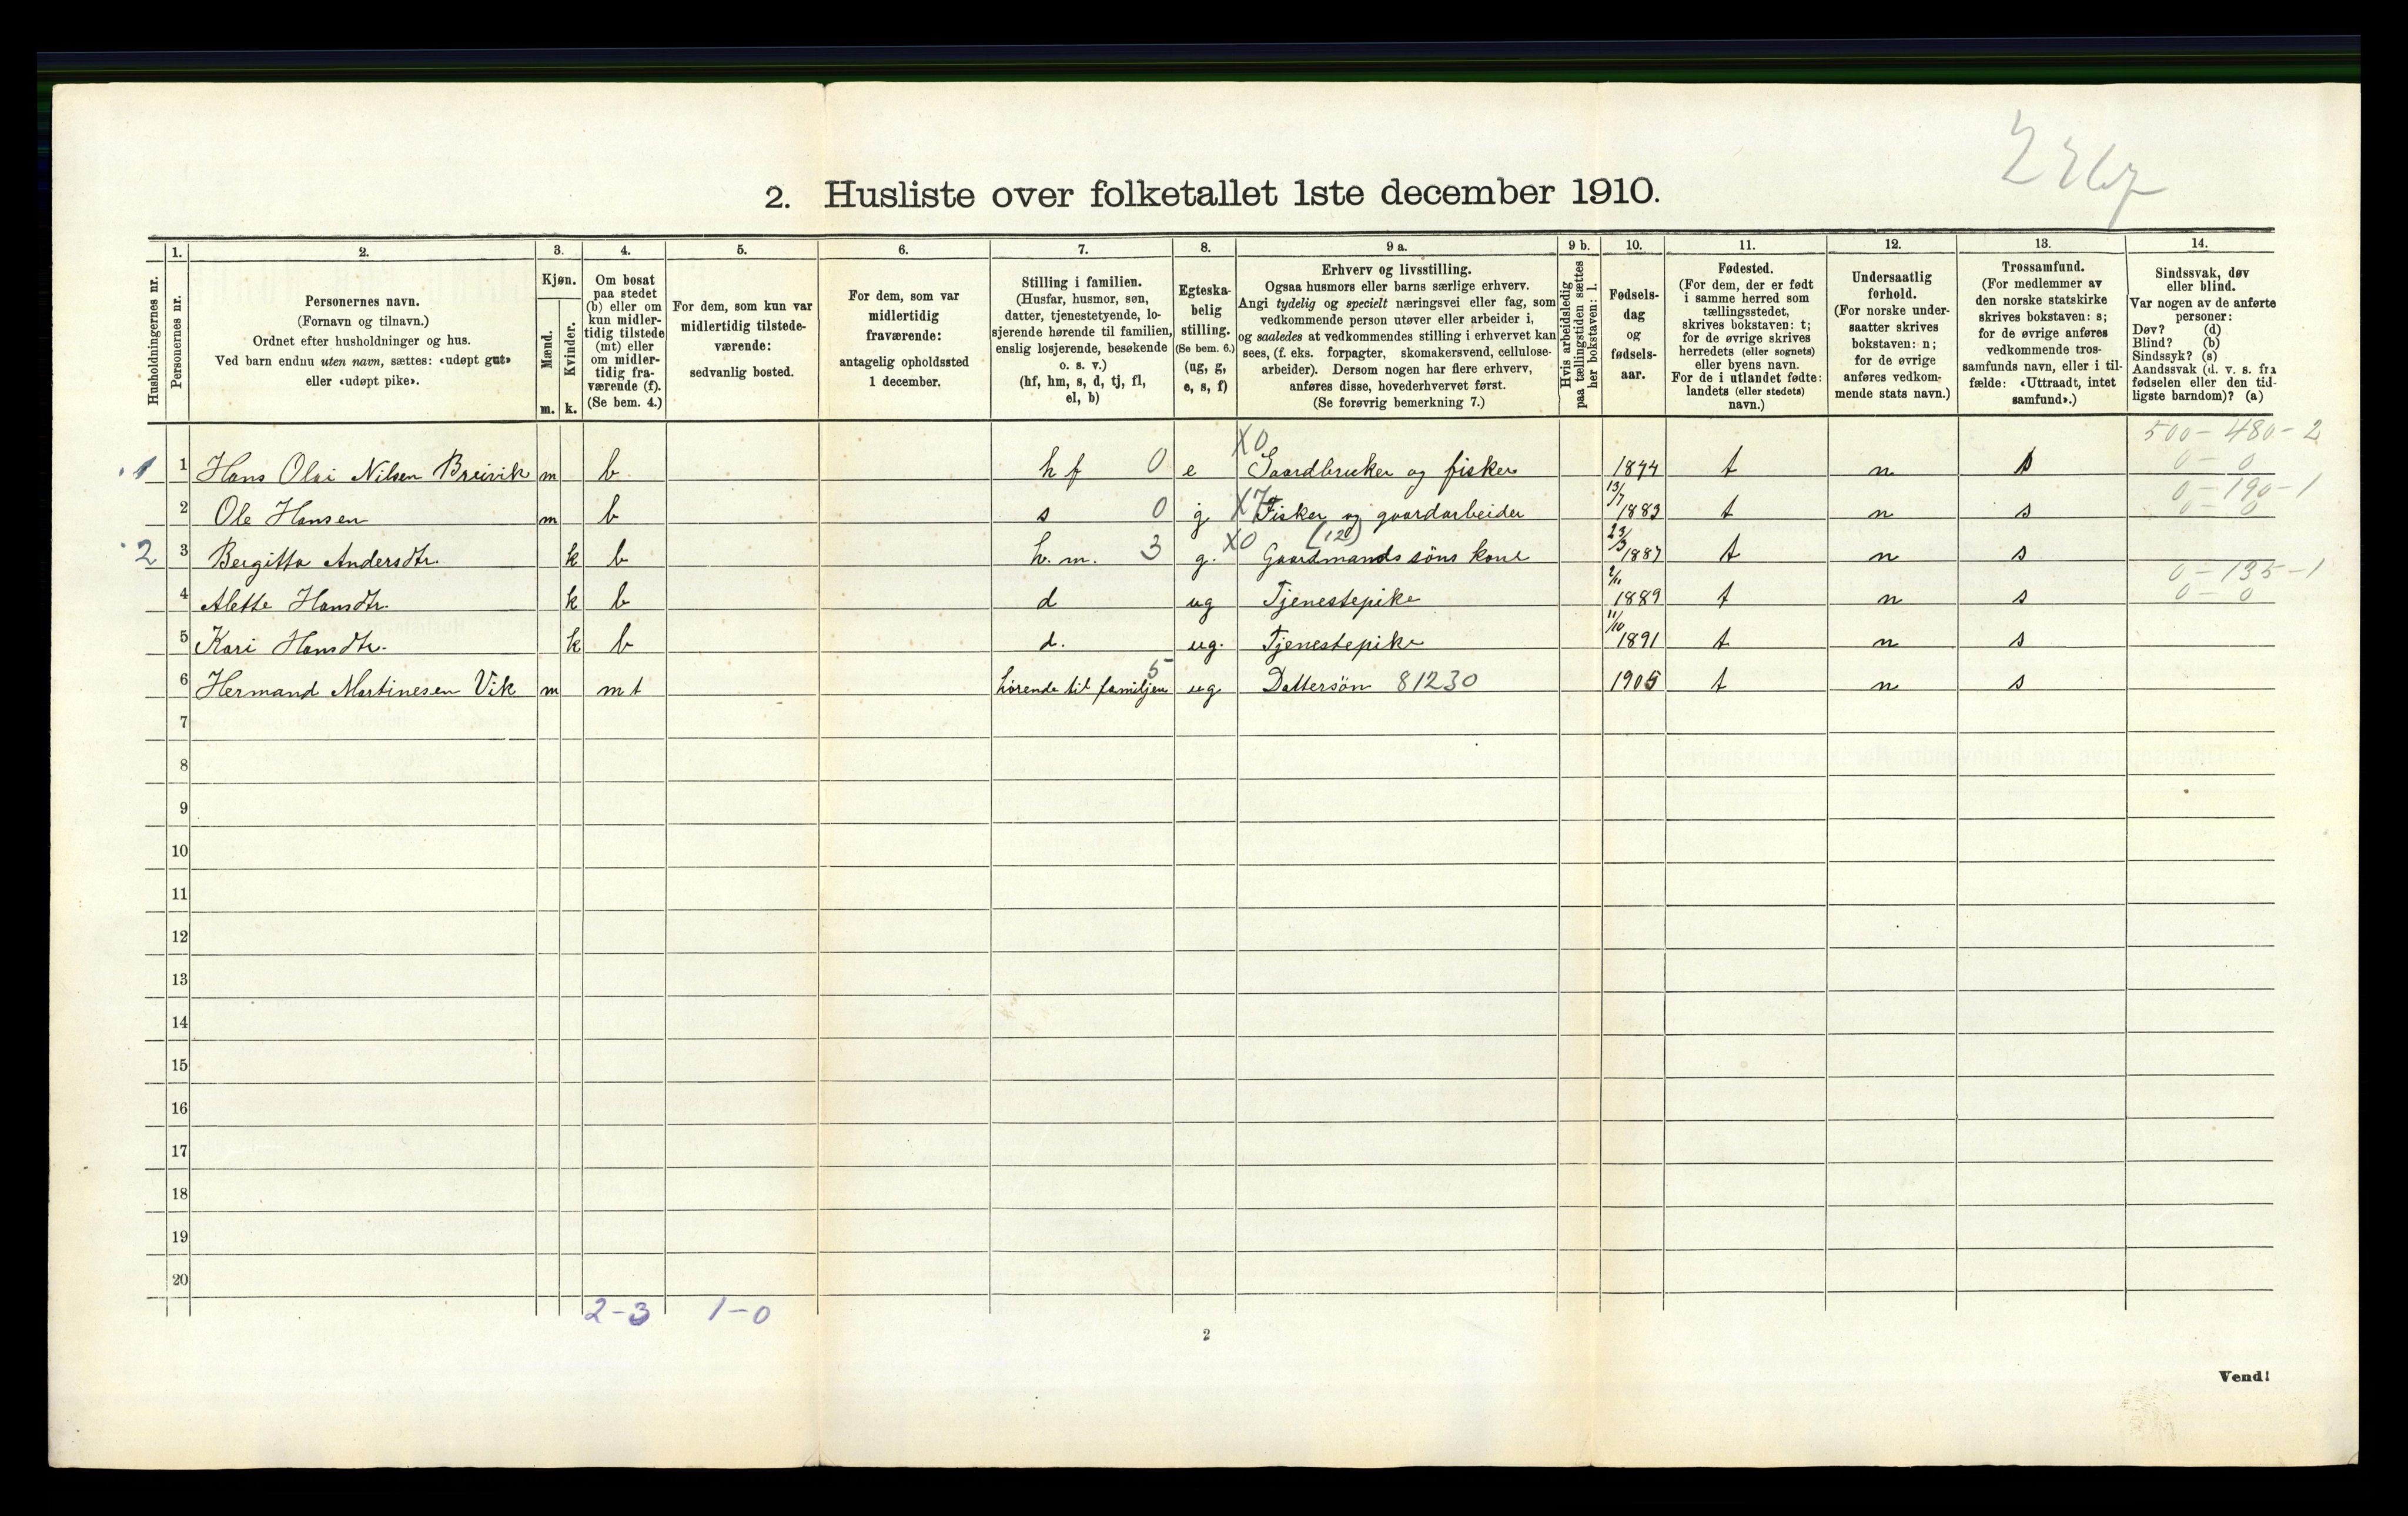 2. Husliste over folketallet 1ste december 1910.
Husholdningernes nr.
1.
Personernes nr.
2.
Personernes navn.
(Fornavn og tilnavn.)
Ordnet efter husholdninger og hus.
Ved barn endnu uten navn, sættes: «udøpt gut»
eller «udøpt pike».
3.
Kjøn.
Mænd.
Kvinder.
m. k.
4.
Om bosat
paa stedet
(b) eller om
kun midler-
tidig tilstede
(mt) eller
om midler-
tidig fra-
værende (f).
(Se bem. 4.)
5.
For dem, som kun var
midlertidig tilstede-
værende:
sedvanlig bosted.
6.
For dem, som var
midlertidig
fraværende:
antagelig opholdssted
1 december.
7.
Stilling i familien.
(Husfar, husmor, søn,
datter, tjenestetyende, lo-
sjerende hørende til familien,
enslig losjerende, besøkende
o. s. v.)
(hf, hm, s, d, tj, fl,
el, b)
8.
Egteska-
belig
stilling.
(Se bem. 6.)
(ug, g,
e, s, f)
9 a.
Erhverv og livsstilling.
Ogsaa husmors eller barns særlige erhverv.
Angi tydelig og specielt næringsvei eller fag, som
vedkommende person utøver eller arbeider i,
og saaledes at vedkommendes stilling i erhvervet kan
sees, (f. eks. forpagter, skomakersvend, cellulose-
arbeider). Dersom nogen har flere erhverv,
anføres disse, hovederhvervet først.
(Se forøvrig bemerkning 7.)
9 b.
Hvis arbeidsledig
paa tællingstiden sættes
her bokstaven: l.
10.
Fødsels-
dag
og
fødsels-
aar.
11.
Fødested.
(For dem, der er født
i samme herred som
tællingsstedet,
skrives bokstaven: t;
for de øvrige skrives
herredets (eller sognets)
eller byens navn.
For de i utlandet fødte:
landets (eller stedets)
navn.)
12.
Undersaatlig
forhold.
(For norske under-
saatter skrives
bokstaven: n;
for de øvrige
anføres vedkom-
mende stats navn.)
13.
Trossamfund.
(For medlemmer av
den norske statskirke
skrives bokstaven: s;
for de øvrige anføres
vedkommende tros-
samfunds navn, eller i til-
fælde: «Uttraadt, intet
samfund».)
14.
Sindssvak, døv
eller blind.
Var nogen av de anførte
personer:
Døv? (d)
Blind? (b)
Sindssyk? (s)
Aandssvak (d. v. s. fra
fødselen eller den tid-
ligste barndom)? (a)
X0 500 - 480 - 2
1 1 Hans Olai Nilsen Breivik m b h f 0 e Gaardbruker og fisker 1844 t n s 0 - 0
13/7 0 - 190 - 1
2 Ole Hansen m b s 0 g X7 Fisker og gaardarbeider 1883 t n s 0 - 0
(12) 23/3
2 3 Bergitta Andersdtr. k b h. m. 3 g. X0 Gaardmands søns kone 1887 t n s
0 - 135 - 1
4 Alette Hansdtr. k b d ug Tjenestepike 1889 t n s 0 - 0
11/10
5 Kari Hansdtr. k b d. ug. Tjenestepike 1891 t n s
5
6 Hermand Martinesen Vik m mt hørende til familjen ug Dattersön 81230 1905 t n s
7
8
9
10
11
12
13
14
15
16
17
18
19
20
2-3 1-0
2
Vend!